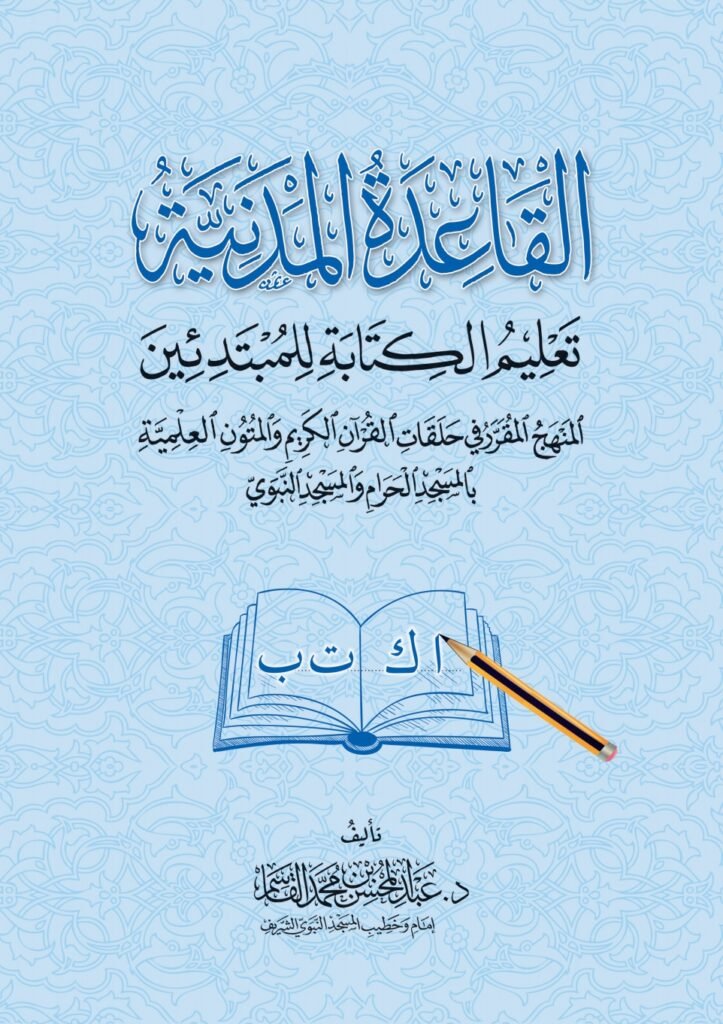 القَاعِدَةُ المَدَنِيَّةُ
تَعْلِيمُ الكِتَابَةِ لِلمُبْتَدِئِينَ
المَنْهَجُ المُقَرَّرُ فِي حَلَقَاتِ القُرْآنِ الكَرِيمِ وَالمُتُونِ العِلْمِيَّةِ
بِالمَسْجِدِ الحَرَامِ وَالمَسْجِدِ النَّبَوِيِّ
ا ك ت ب
تأليفُ
د. عَبْد المُحْسِن بْن مُحَمَّد القَاسِم
إمَام وَخَطِيب المَسْجِدِ النَّبَوِيِّ الشَّرِيفِ